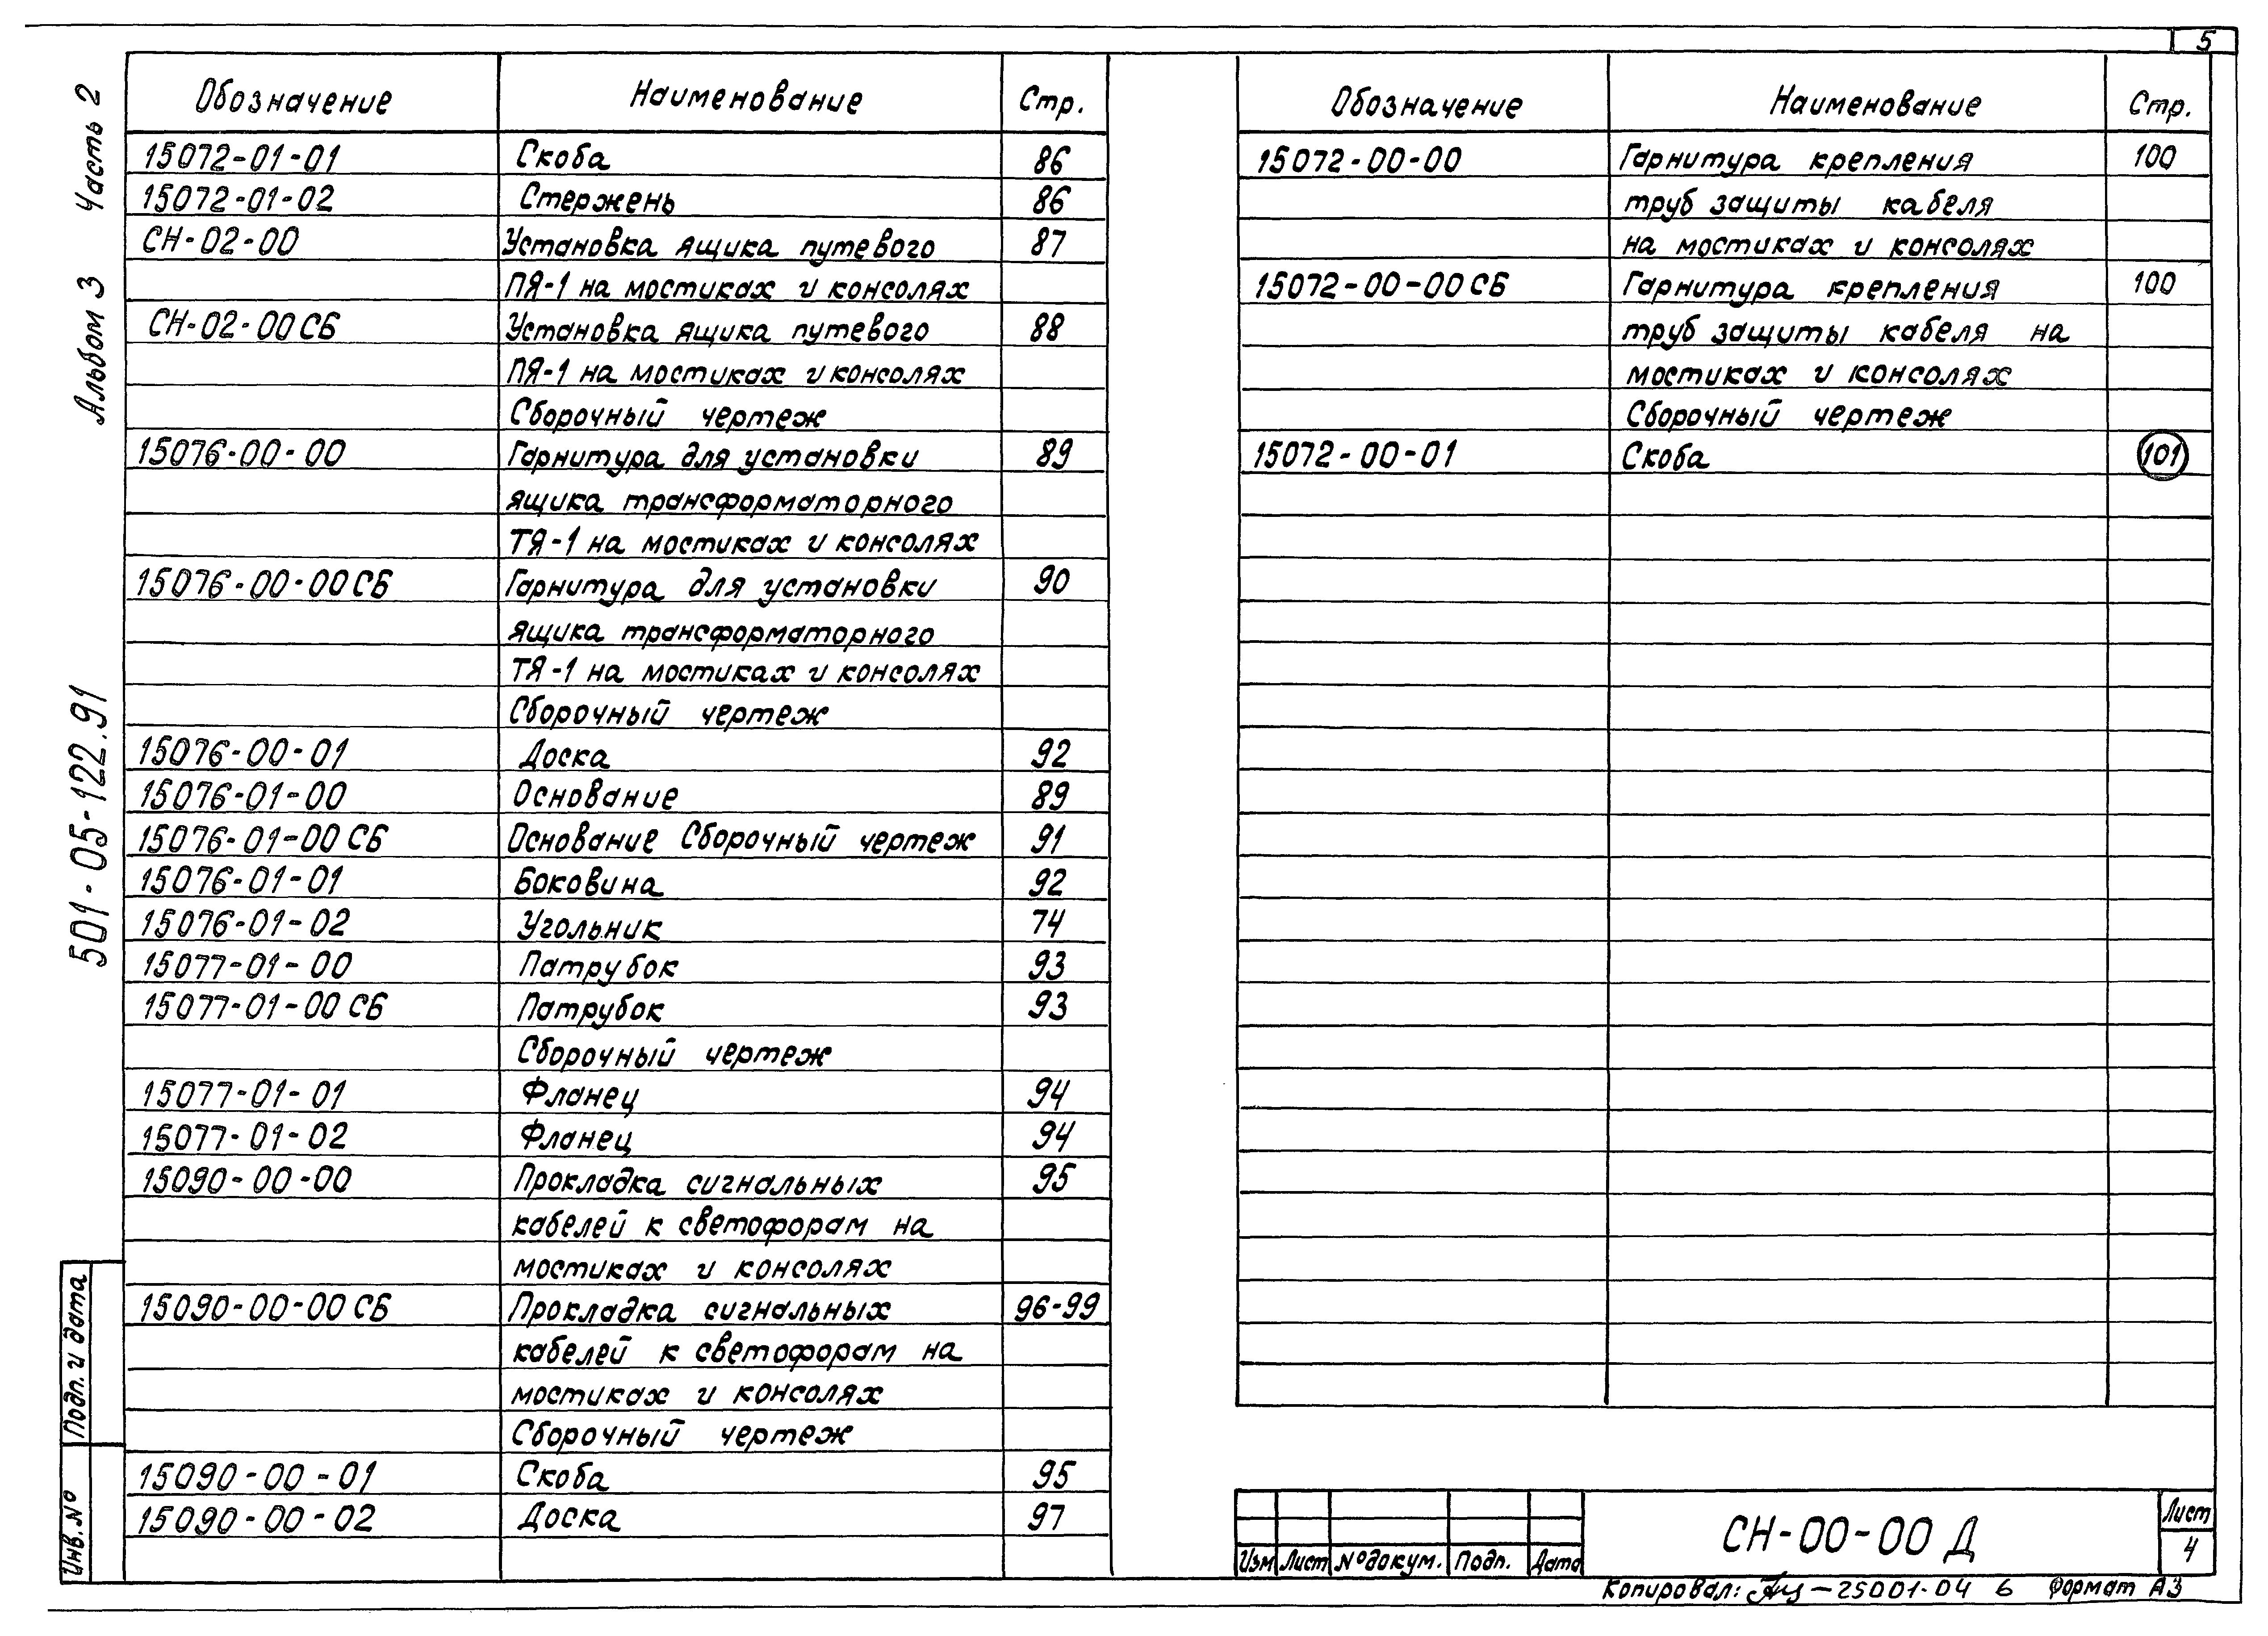 5
Часть 2
Альбом 3
501-05-122.91
Подп. и дата
Инв. №
Обозначение Наименование Стр.
15072-01-01 Скоба 86
15072-01-02 Стержень 86
СН-02-00 Установка ящика путевого 87
ПЯ-1 на мостиках и консолях
СН-02-00 СБ Установка ящика путевого 88
ПЯ-1 на мостиках и консолях
Сборочный чертеж
15076-00-00 Гарнитура для установки 89
ящика трансформаторного
ТЯ-1 на мостиках и консолях
15076-00-00 СБ Гарнитура для установки 90
ящика трансформаторного
ТЯ-1 на мостиках и консолях
Сборочный чертеж
15076-00-01 Доска 92
15076-01-00 Основание 89
15076-01-00 СБ Основание Сборочный чертеж 91
15076-01-01 Боковина 92
15076-01-02 Угольник 74
15077-01-00 Патрубок 93
15077-01-00 СБ Патрубок 93
Сборочный чертеж
15077-01-01 Фланец 94
15077-01-02 Фланец 94
15090-00-00 Прокладка сигнальных 95
кабелей к светофорам на
мостиках и консолях
15090-00-00 СБ Прокладка сигнальных 96-99
кабелей к светофорам на
мостиках и консолях
Сборочный чертеж
15090-00-01 Скоба 95
15090-00-02 Доска 97
Обозначение Наименование Стр.
15072-00-00 Гарнитура крепления 100
труб защиты кабеля
на мостиках и консолях
15072-00-00 СБ Гарнитура крепления 100
труб защиты кабеля на
мостиках и консолях
Сборочный чертеж
15072-00-01 Скоба 101
Изм Лист № докум. Подп. Дата
СН-00-00 Д
Лист
4
Копировал: 25001-04 6 Формат А3